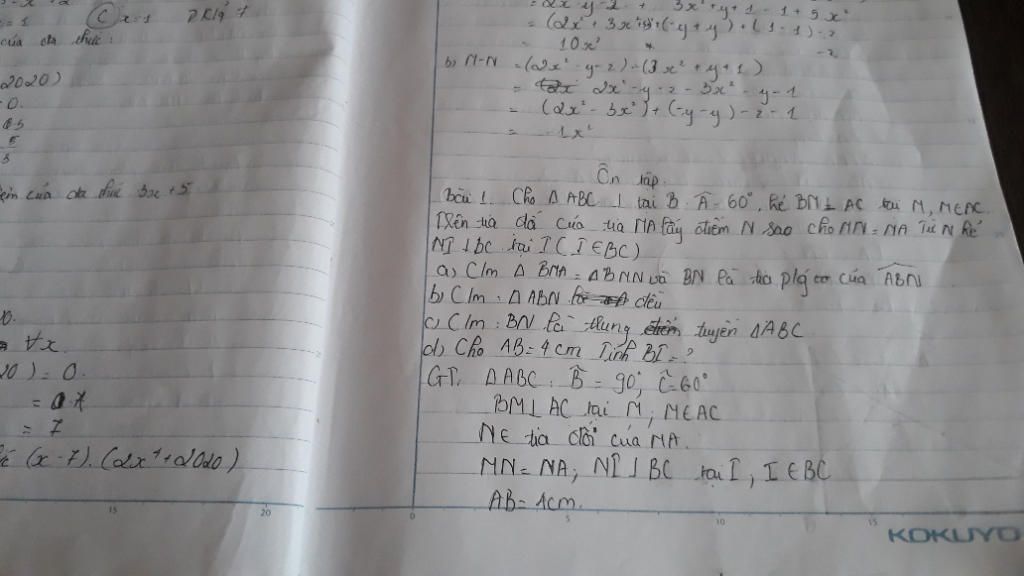 = 1 C x = 1
của đa thức:
2020)
0.
của đa thức 3x + 5
∀x
20) = 0.
= 7
(x - 7). (2x⁴ + 2020)
= 10x²
b) M-N = (2x² - y - z) - (3x² + y + 1)
= 2x² - y - z - 3x² - y - 1
= (2x² - 3x²) + (-y - y) - z - 1
= -1x²
Ôn tập.
Bài 1. Cho Δ ABC ⊥ tại B. Â = 60°, kẻ BM ⊥ AC tại M, M∈AC.
Trên tia đối của tia MA lấy điểm N sao cho MN = MA Từ N kẻ
NI ⊥ BC tại I ( I ∈ BC)
a) C/m Δ BMA = Δ BMN và BM là tia p/g của ABN
b) C/m : Δ ABN đều
c) C/m : BN là trung tuyến ΔABC
d) Cho AB = 4cm Tính BI = ?
GT. ΔABC : B̂ = 90°, Ĉ = 60°
BM ⊥ AC tại M, M∈AC
N ∈ tia đối của MA.
MN = NA, NI ⊥ BC tại I, I ∈ BC
AB = 4cm.
15 20 0 5 10 15
KOKUYO